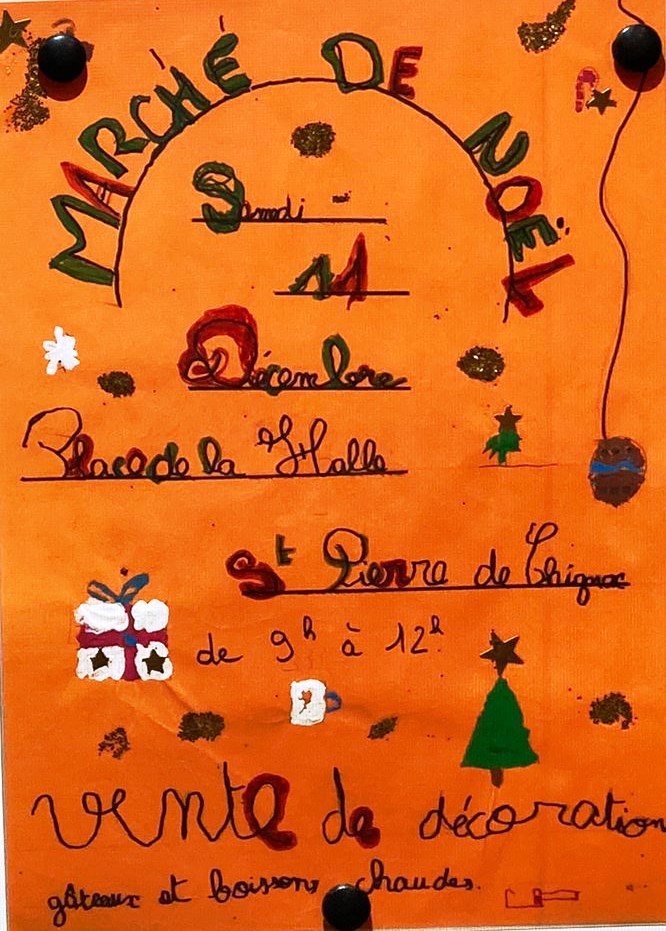 MARCHÉ DE NOËL
Samdi
11
Décembre
Place de la Halle
St Pierre de Chignac
de 9h à 12h
vente de décoration
gâteaux et boissons chaudes.